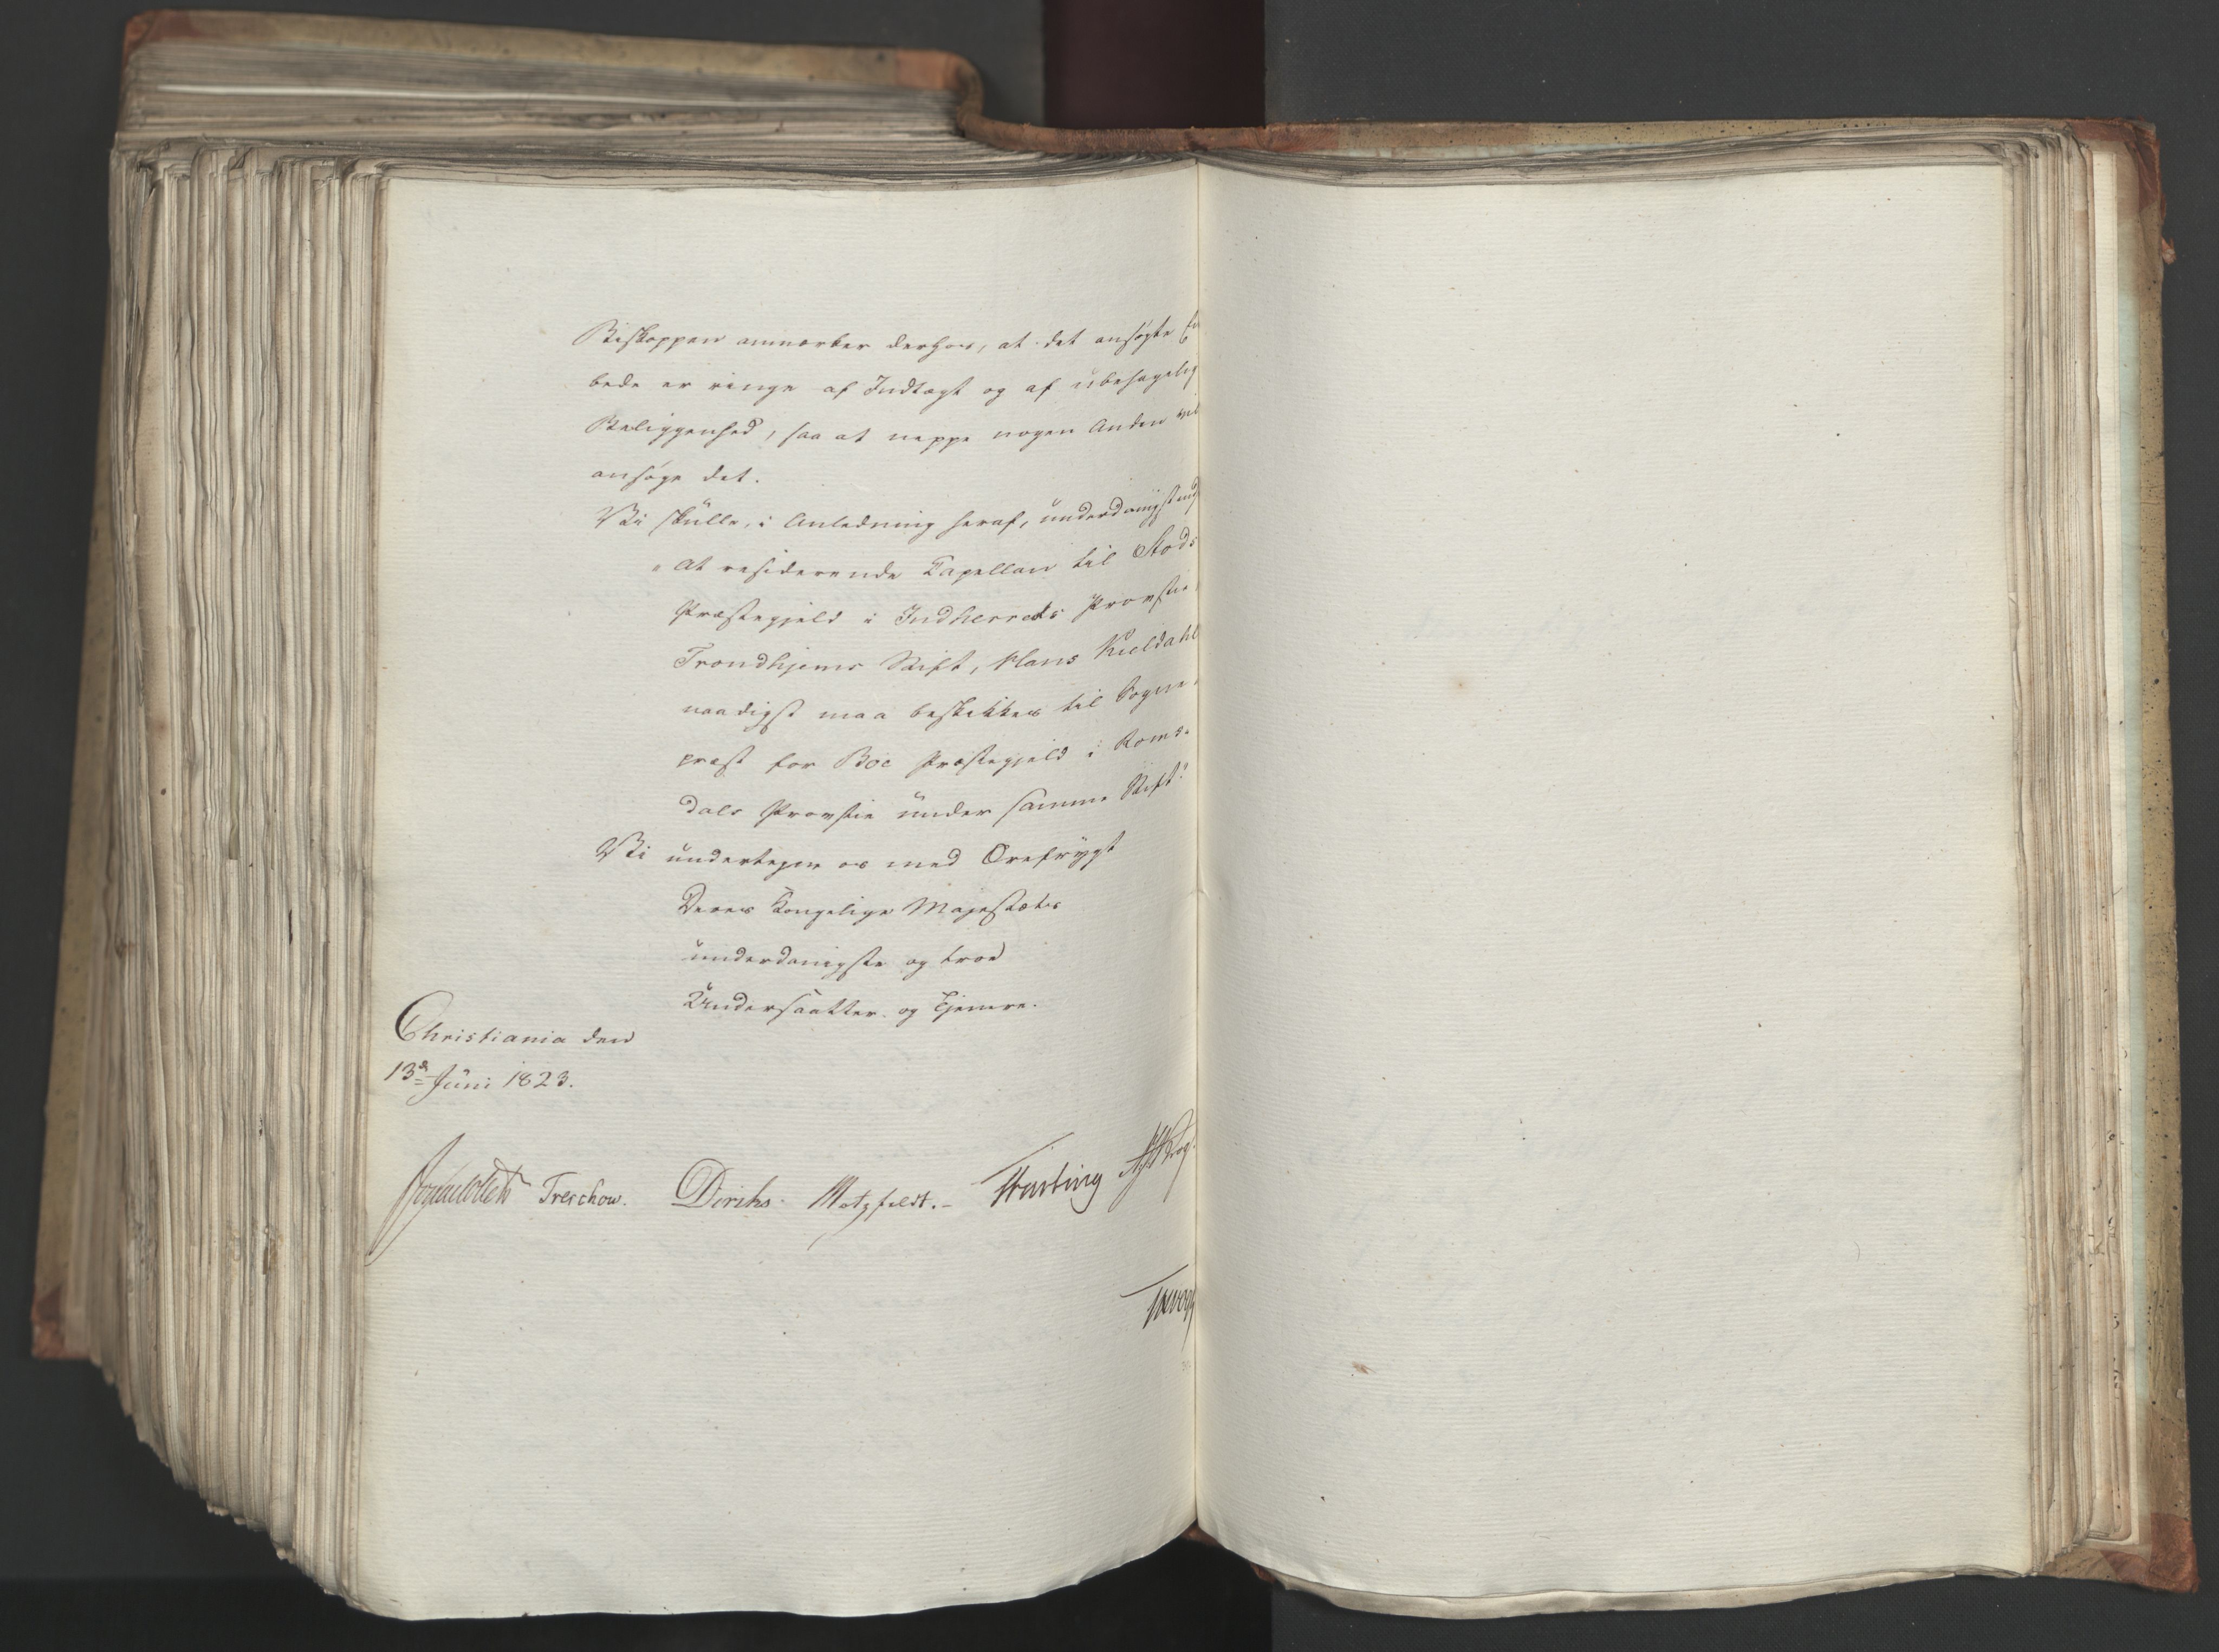 Biskoppen anmærker derhos, at det ansøgte Em
bede er ringe af Indtægt og af ubehagelig
Beliggenhed, saa at neppe nogen Anden vil
ansøge det.
Vi skulle, i Anledning heraf, underdanigst ind
"At residerende Capellan til Stods
Præstegjeld i Indherreds Provstie,
Trondhjems Stift, Hans Kieldahl
naadigst maa beskikkes til Sogne-
præst for Boe Præstegjeld i Roms-
dals Provstie under samme Stift."
Vi undertegne os med Ærefrygt
Deres Kongelige Majestæts
underdanigste og troe
Undersaatter og Tjenere.
Christiania den
13de Juni 1823.
Treschow. Diriks. Motzfeldt. Fasting